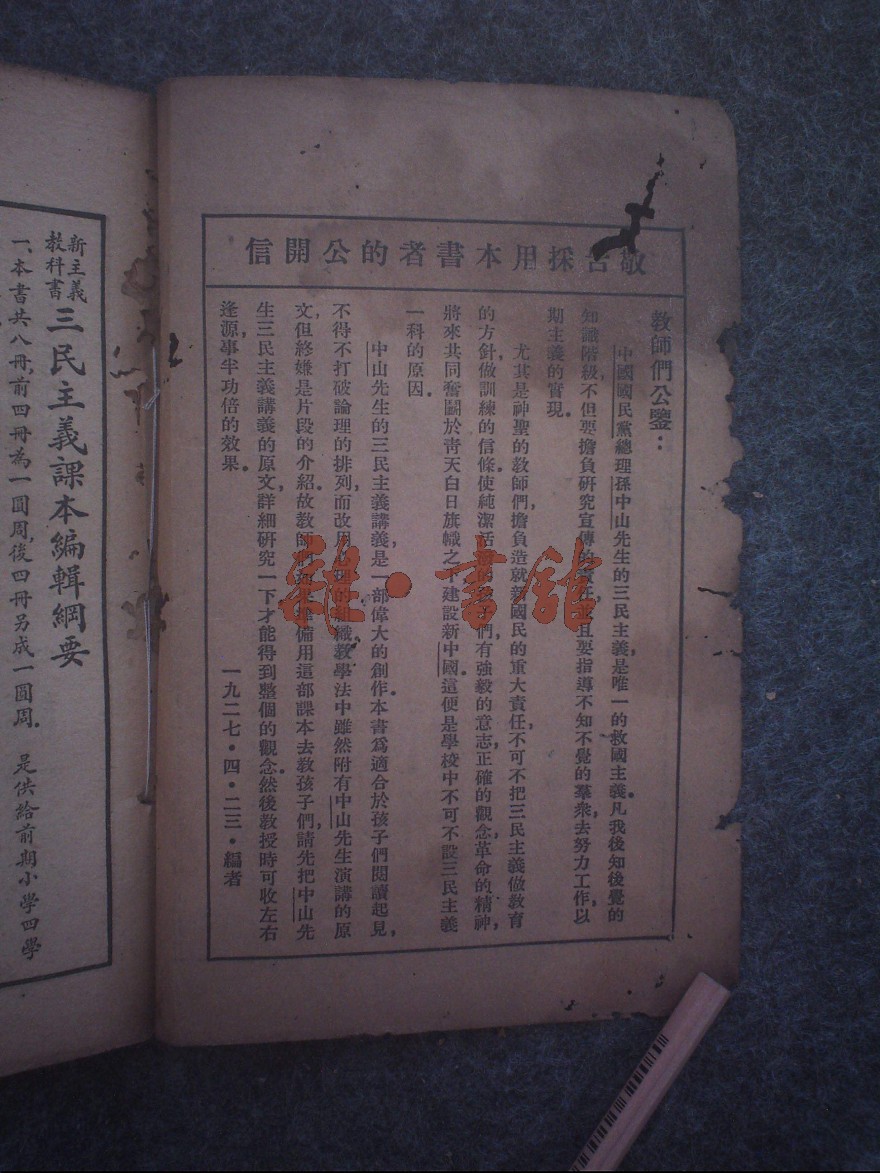 敬告採用本書者的公開信
教師們公鑒：
中國國民黨總理孫中山先生的三民主義，是唯一的救國主義。凡我後知後覺的
知識階級，不但要擔負研究宣傳的責任，並且要指導不知不覺的羣衆，去努力工作，以
期主義的實現。
尤其是神聖的教師們，擔負造就新國民的重大責任，不可不把三民主義做教育
的方針，做訓練的信條，使純潔活潑的孩子們，有強毅的意志，正確的觀念，革命的精神，
將來共同奮鬭於青天白日旗幟之下，建設新中國。這便是學校中不可不設三民主義
一科的原因。
中山先生的三民主義講義，是一部偉大的創作。本書爲適合於孩子們閱讀起見，
不得不打破論理的排列，而改用心理的組織。教學法中雖然附有中山先生演講的原
文，但終嫌是片段的介紹。故教師們準備用這部課本去教孩子們，請先把中山先
生三民主義講義的原文，詳細研究一下，才能得到整個的觀念。然後教授時可收左右
逢源，事半功倍的效果。
一九二七・四・二三・編者
新主義
教科書
三民主義課本編輯綱要
一、本書共八冊，前四冊為一圓周，後四冊另成一圓周。是供給前期小學四學
雜・書館